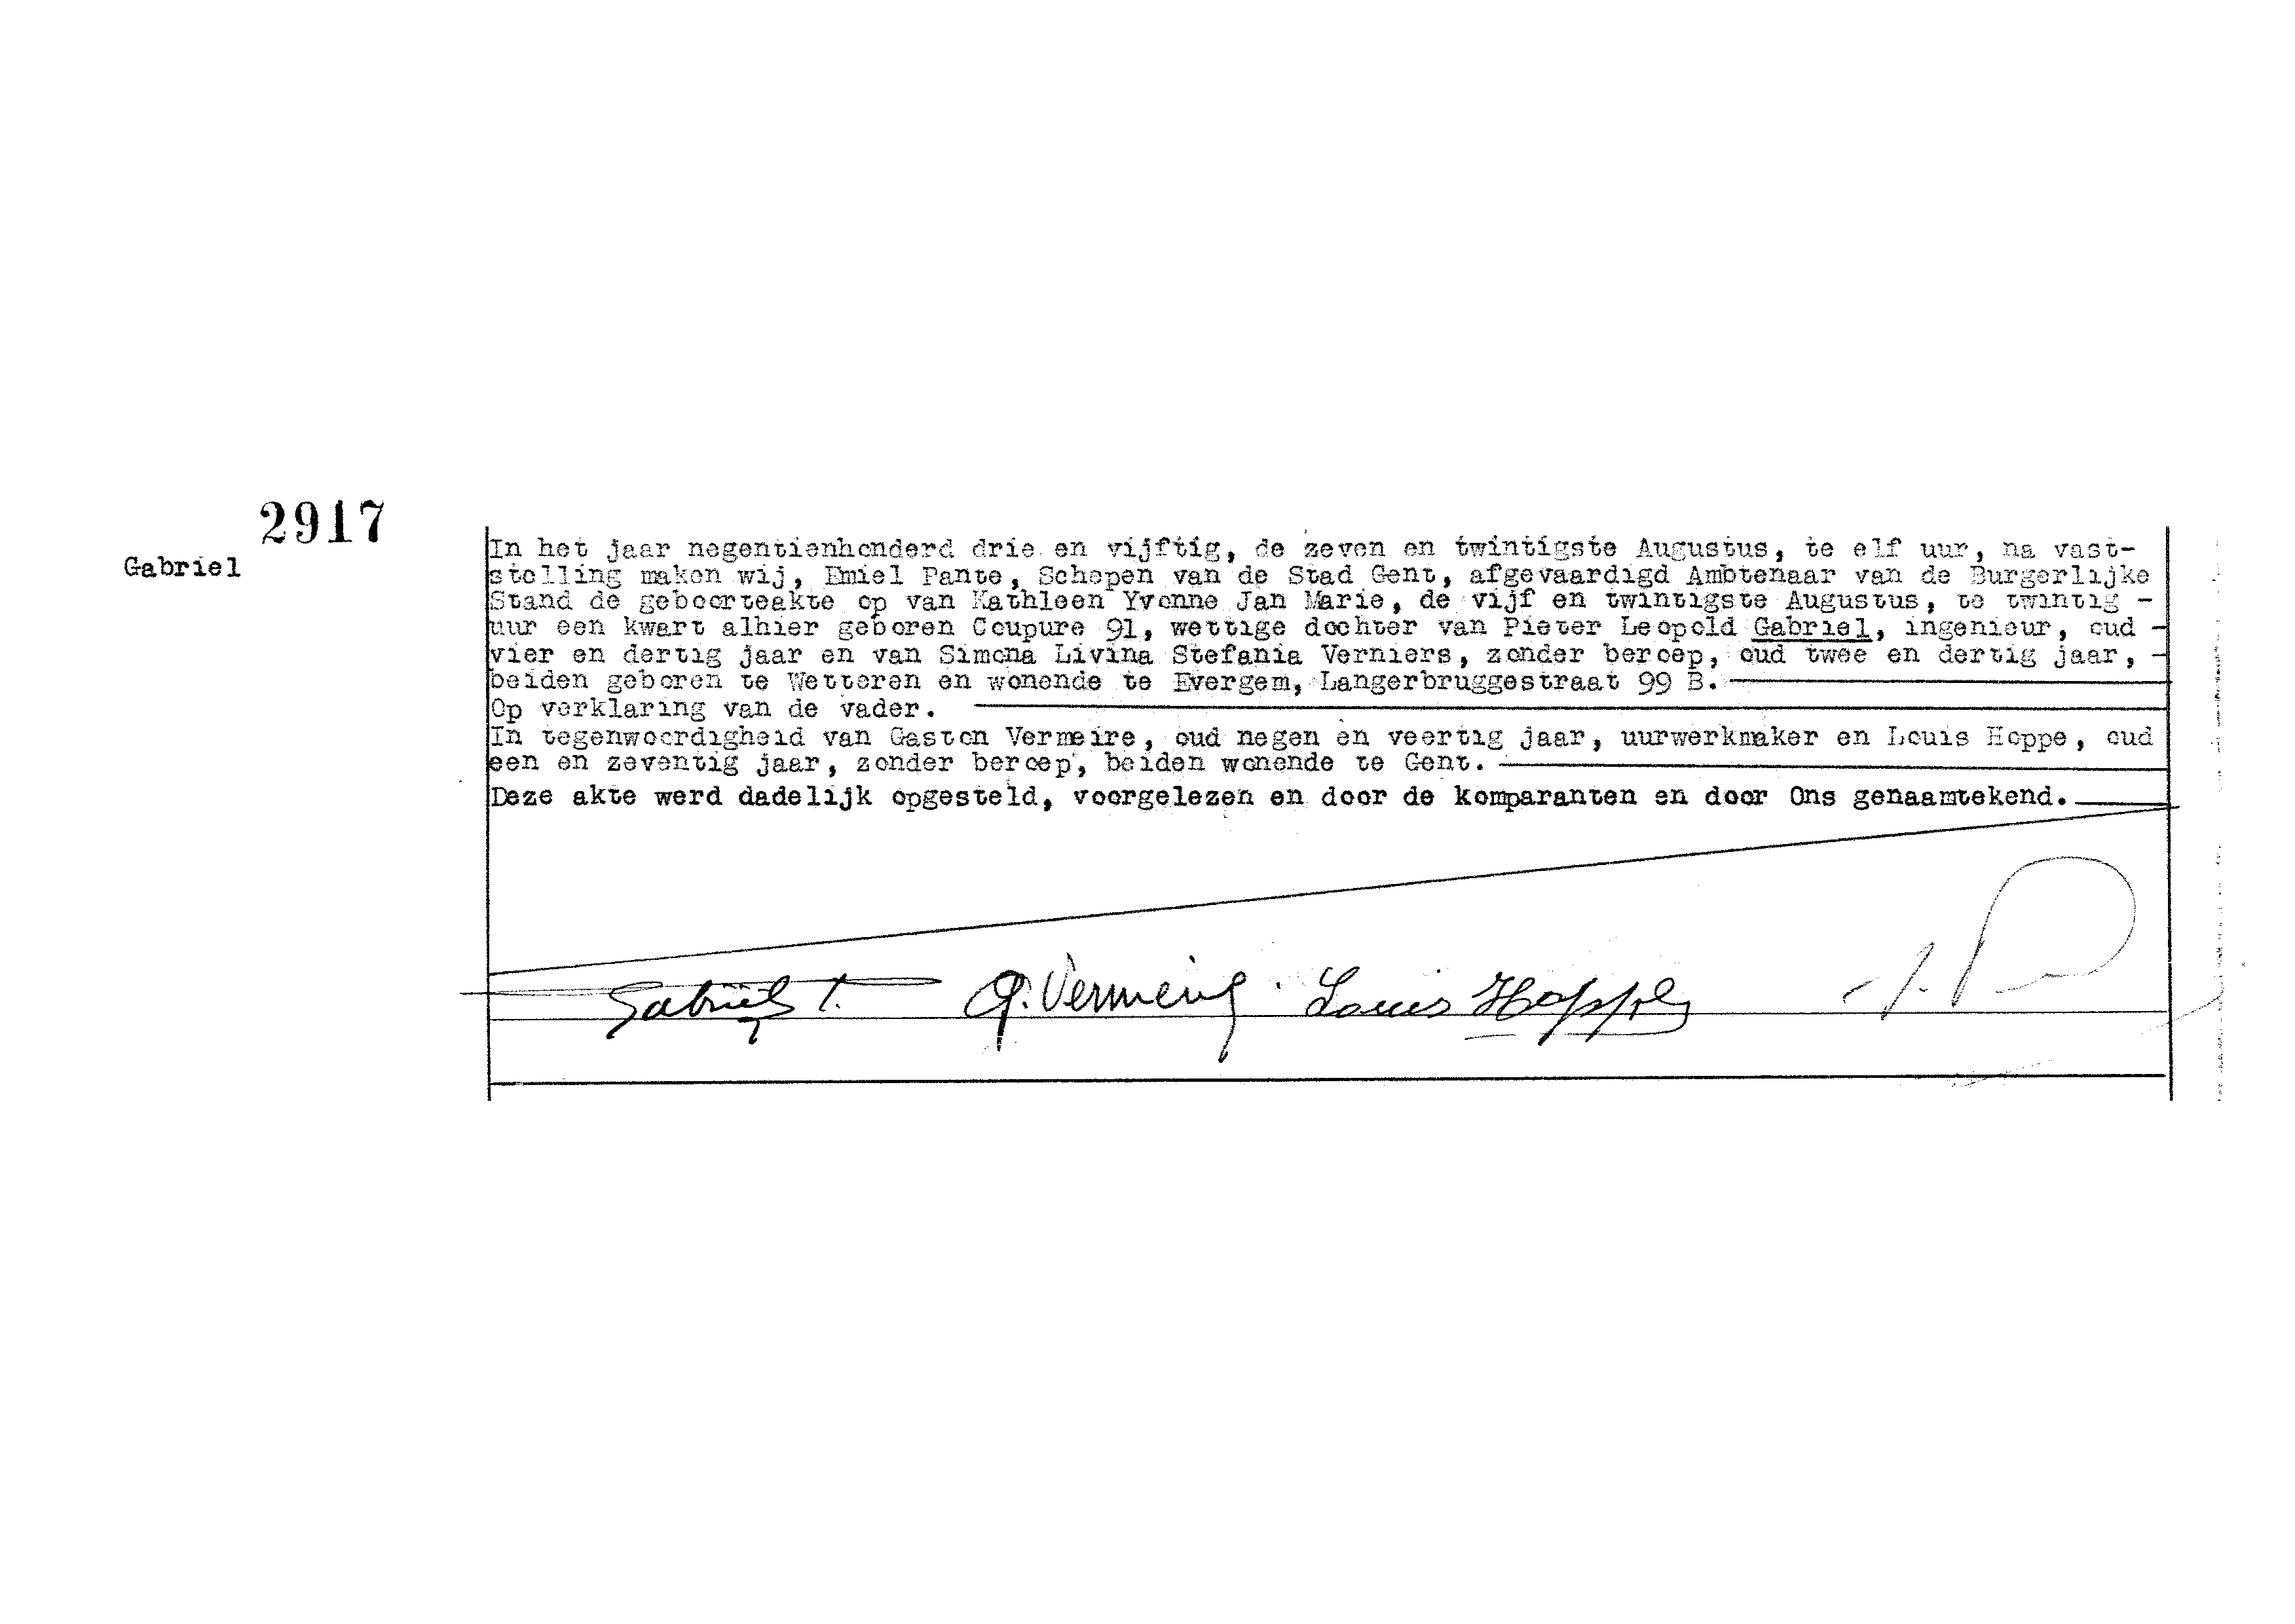 2917
Gabriel
In het jaar negentienhonderd drie en vijftig, de zeven en twintigste Augustus, te elf uur, na vast-
stelling maken wij, Emiel Pante, Schepen van de Stad Gent, afgevaardigd Ambtenaar van de Burgerlijke
Stand de geboorteakte op van Kathleen Yvonne Jan Marie, de vijf en twintigste Augustus, te twintig -
uur een kwart alhier geboren Coupure 91, wettige dochter van Pieter Leopold Gabriel, ingenieur, oud -
vier en dertig jaar en van Simona Livina Stefania Verniers, zonder beroep, oud twee en dertig jaar, -
beiden geboren te Wetteren en wonende te Evergem, Langerbruggestraat 99 B.
Op verklaring van de vader.
In tegenwoordigheid van Gaston Vermeire, oud negen en veertig jaar, uurwerkmaker en Louis Hoppe, oud
een en zeventig jaar, zonder beroep, beiden wonende te Gent.
Deze akte werd dadelijk opgesteld, voorgelezen en door de komparanten en door Ons genaamtekend.
Gabriel G. Vermeire Louis Hoppe